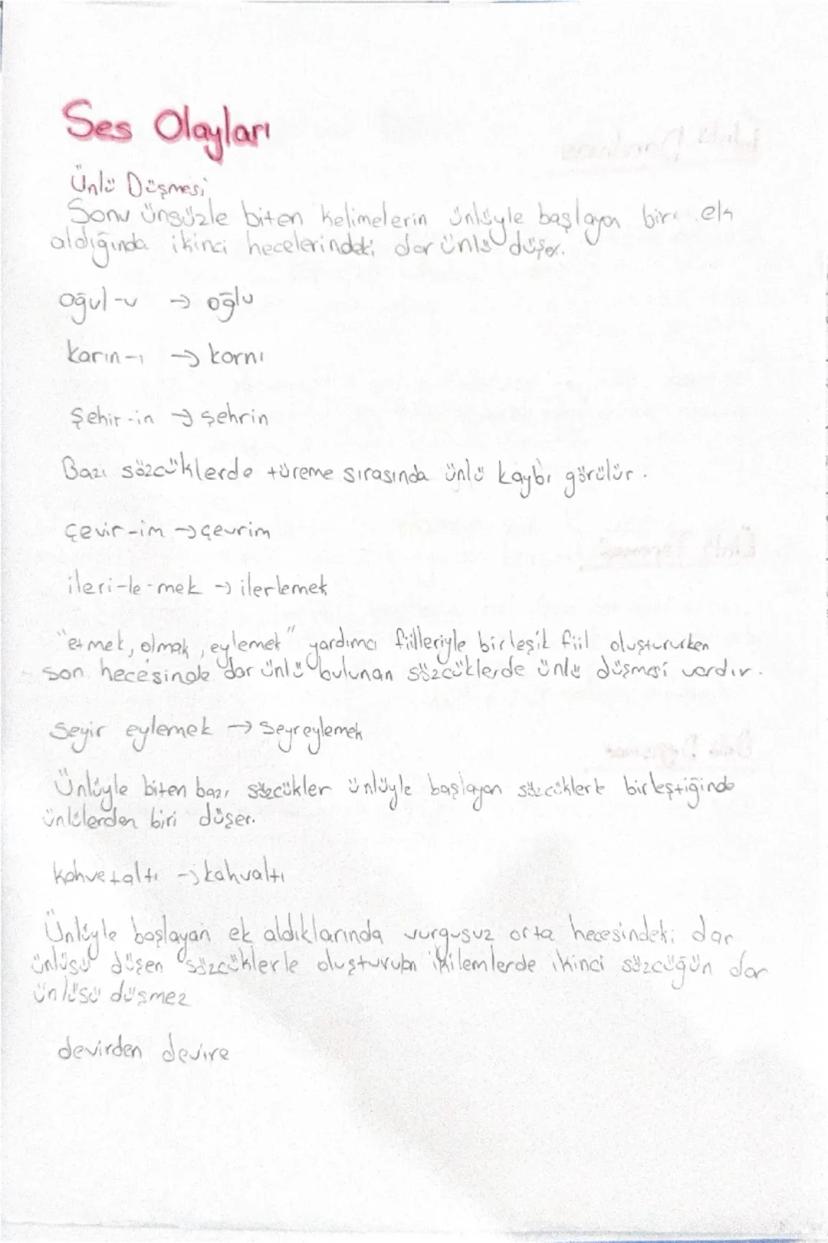 Ses Olayları
Ünlü Düşmesi
Sonu ünsüzle biten kelimelerin ünlüyle başlayan bir ek
aldığında ikinci hecelerindeki dar ünlü düşer.
oğul-u → oğlu
karın-ı → karnı
şehir-in → şehrin
Bazı sözcüklerde türeme sırasında ünlü kaybı görülür.
çevir-im → çevrim
ileri-le-mek → ilerlemek
"etmek, olmak, eylemek" yardımcı fiilleriyle birleşik fiil oluştururken
son hecesinde dar ünlü bulunan sözcüklerde ünlü düşmesi vardır.
Seyir eylemek → Seyreylemek
Ünlüyle biten bazı sözcükler ünlüyle başlayan sözcüklerle birleştiğinde
ünlülerden biri düşer.
Kahve+altı → kahvaltı
Ünlüyle başlayan ek aldıklarında vurgusuz orta hecesindeki dar
ünlüsü düşen sözcüklerle oluşturulan ikilemlerde ikinci sözcüğün dar
ünlüsü düşmez
devirden devire